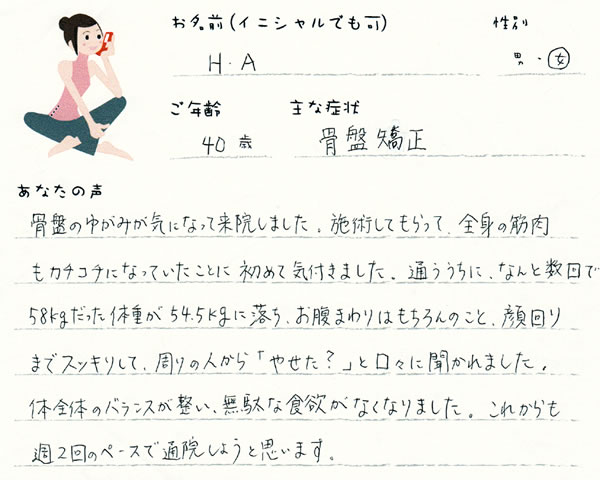 お名前(イニシャルでも可) 性別
H.A 男・女
ご年齢 主な症状
40歳 骨盤矯正
あなたの声
骨盤のゆがみが気になって来院しました。施術してもらって、全身の筋肉
もカチコチになっていたことに初めて気付きました。通ううちに、なんと数回で
58kgだった体重が54.5kgに落ち、お腹まわりはもちろんのこと、顔回り
までスッキリして、周りの人から「やせた?」と口々に聞かれました。
体全体のバランスが整い、無駄な食欲がなくなりました。これからも
週2回のペースで通院しようと思います。